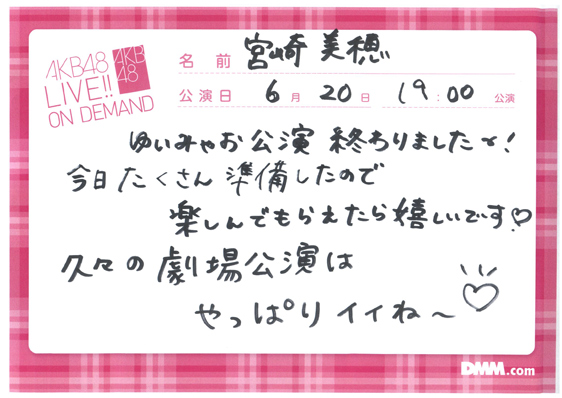 AKB48
LIVE!!
ON DEMAND
AKB
48
名前 宮崎美穂
公演日 6月20日 19:00公演
ゆいみゃお公演 終わりましたˇ!
今日たくさん準備したので
楽しんでもらえたら嬉しいです♡
久々の劇場公演は
やっぱりイイね〜♡
DMM.com